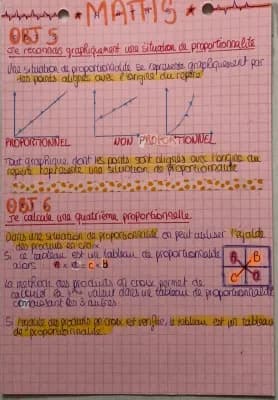 MATHS
OBJ 5
Je reconnais graphiquement une situation de proportionnalité
Une situation de proportionnalité se représente graphiquement par
des points alignés avec l'origine du repère
PROPORTIONNEL NON PROPORTIONNEL
Tout graphique dont les points sont alignés avec l'origine du
repère représente une situation de proportionnalité
OBJ 6
Je calcule une quatrième proportionnelle
Dans une situation de proportionnalité on peut utiliser l'égalité
des produits en croix
Si ce tableau est un tableau de proportionnalité
alors A × D = C × B
A B
C D
La méthode des produits en croix permet de
calculer la 4ème valeur dans un tableau de proportionnalité
connaissant les 3 autres.
Si l'égalité des produits en croix est vérifiée, le tableau est un tableau
de proportionnalité